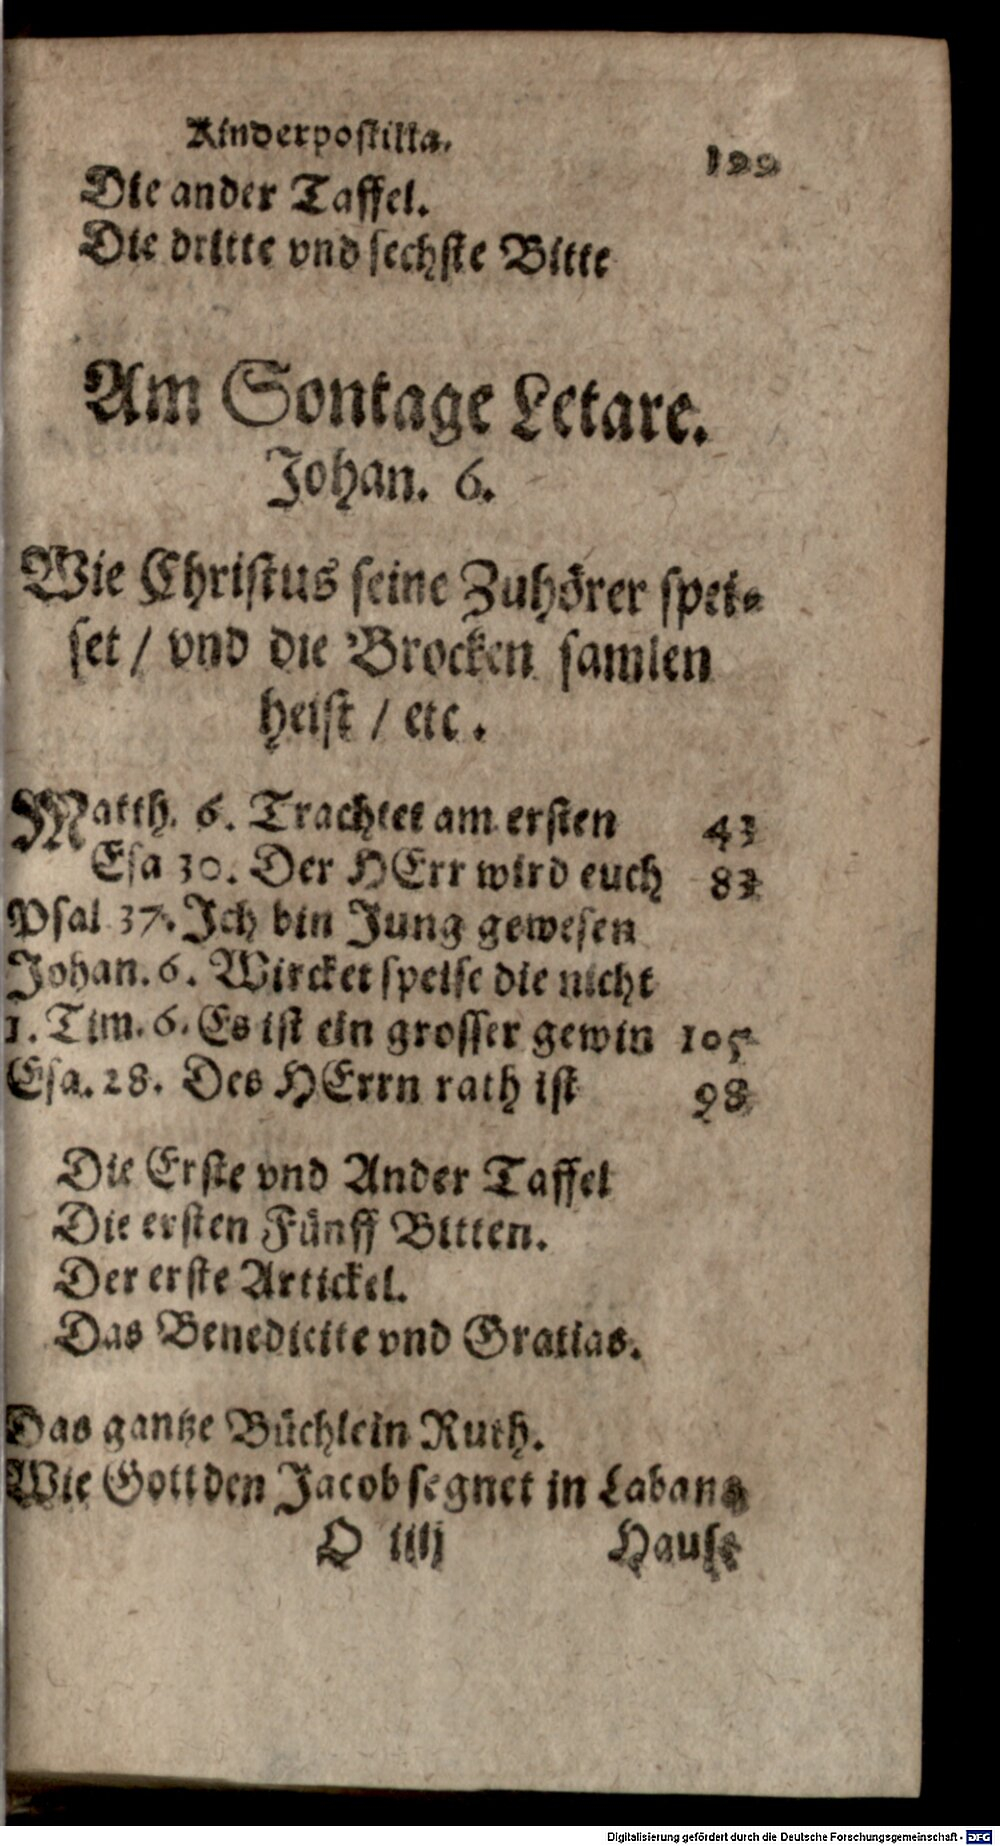 Kinderpostilla. 199
Die ander Taffel.
Die dritte vnd sechste Bitte
Am Sontage Letare.
Johan. 6.
Wie Christus seine Zuhörer spei-
set / vnd die Brocken samlen
heist / etc.
Matth. 6. Trachtet am ersten 43
Esa 30. Der HErr wird euch 83
Psal 37. Ich bin Jung gewesen
Johan. 6. Wircket speise die nicht
1. Tim. 6. Es ist ein grosser gewin 105
Esa. 28. Des HErrn rath ist 98
Die Erste vnd Ander Taffel
Die ersten Fünff Bitten.
Der erste Artickel.
Das Benedicite vnd Gratias.
Das gantze Büchlein Ruth.
Wie Gott den Jacob segnet in Labans
O iiij Hause
Digitalisierung gefördert durch die Deutsche Forschungsgemeinschaft - DFG